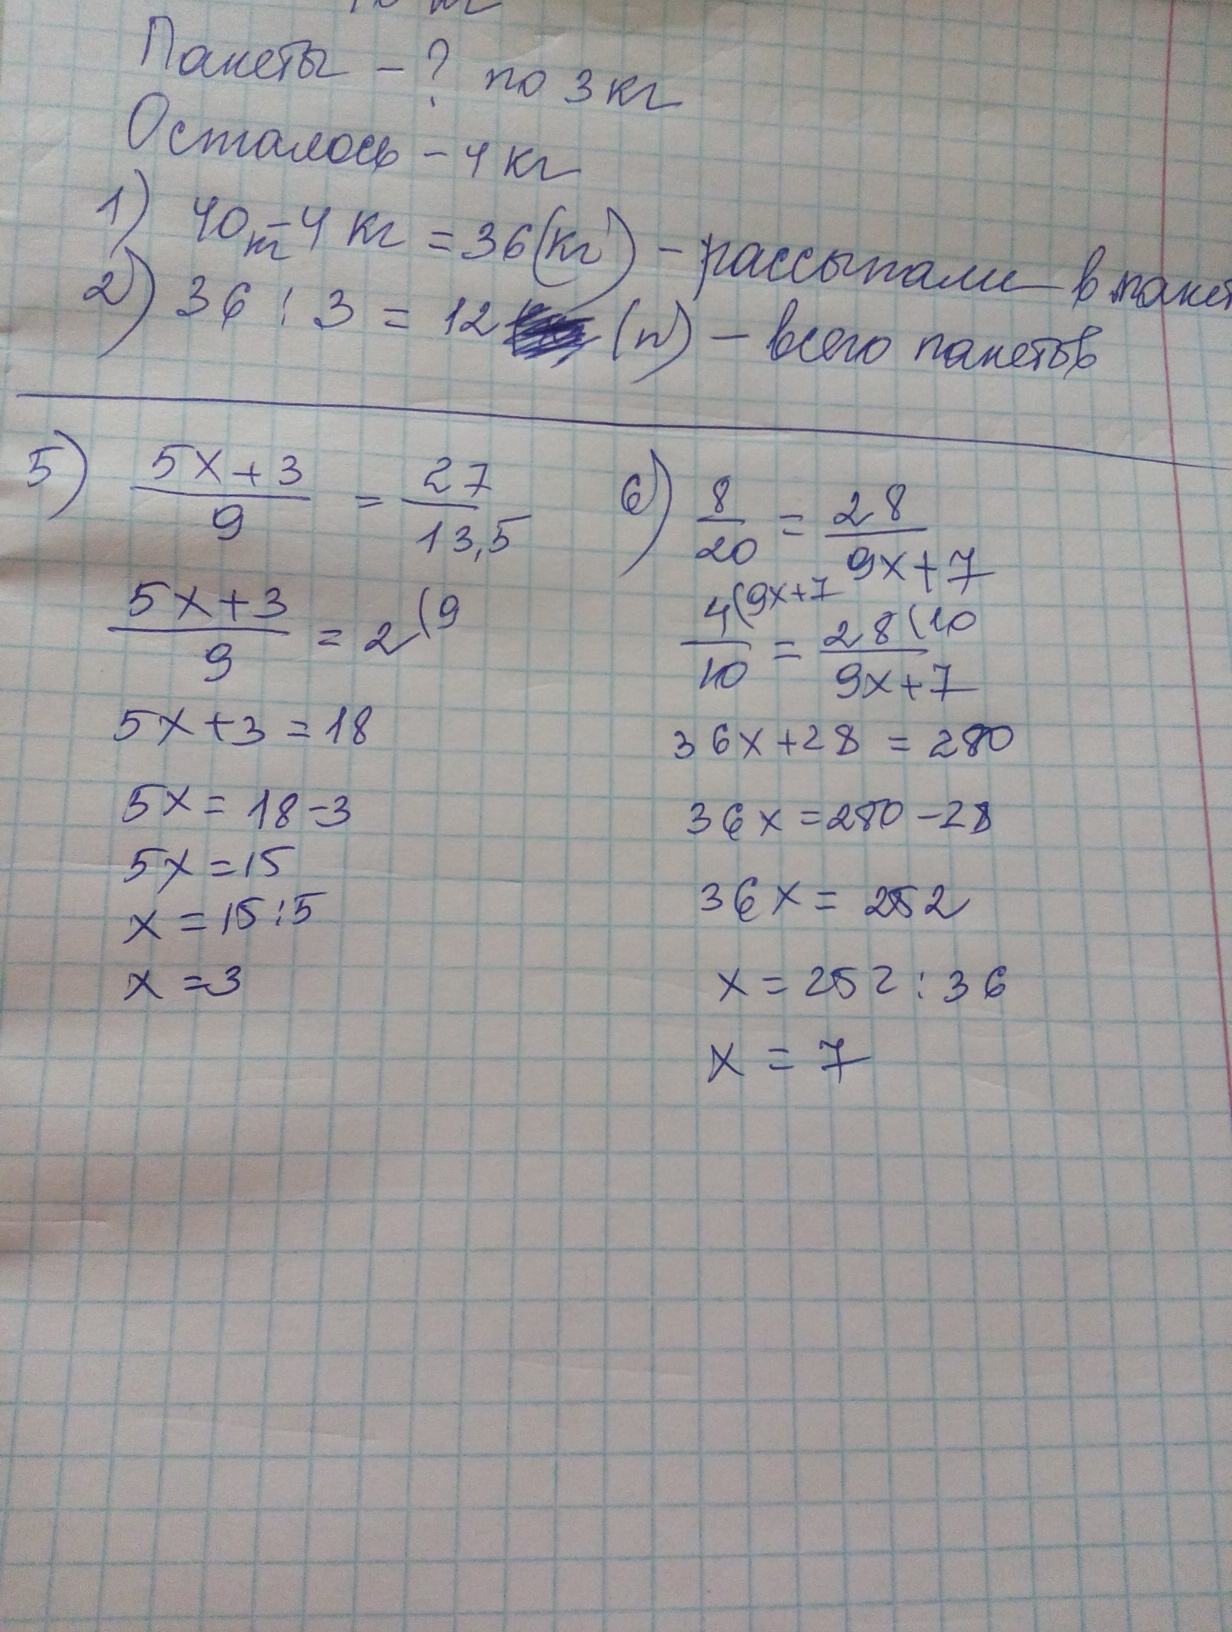 Пакеты - ? по 3 кг
Осталось - 4 кг
1) 40 - 4 кг = 36 (кг) - рассыпали в пакет
2) 36 : 3 = 12 (п) - всего пакетов
5) (5x+3)/9 = 27/13,5
(5x+3)/9 = 2 (9
5x+3 = 18
5x = 18-3
5x = 15
x = 15:5
x = 3
6) 8/20 = 28/(9x+7)
4(9x+7/10 = 28(10/(9x+7)
36x+28 = 280
36x = 280-28
36x = 252
x = 252 : 36
x = 7